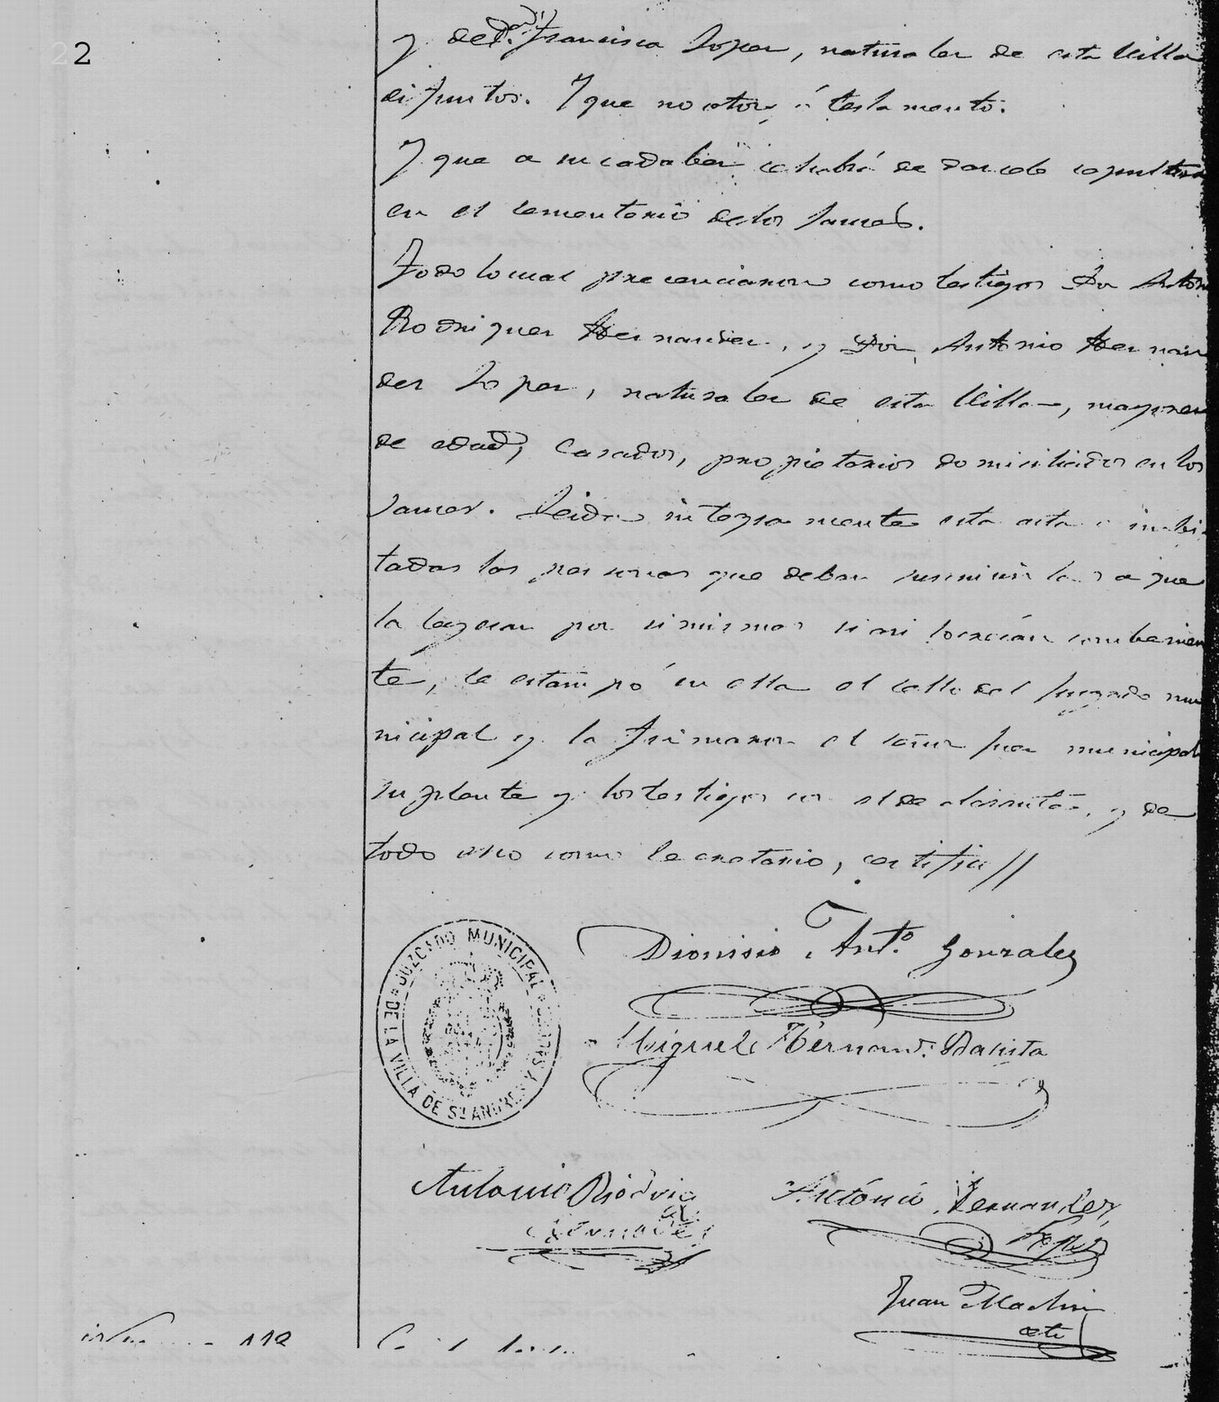 22
y de Dª Francisca Lopez, naturales de esta Villa
difuntos. Y que no otorgó testamento.
Y que a su cadaber se habrá de dar sele sepultura
en el sementerio de los Sauces.
Todo lo cual precenciaron como testigos Don Antonio
Rodriguez Hernandez, y Don Antonio Hernan
dez Lopez, naturales de esta Villa, mayores
de edad, Casados, propietarios domiciliados en los
Sauces. Leida integramente esta acta e inbi
tadas las personas que deben suscribirla a que
la leyeran por si mismas si asi lo creian combenien
te, se estampó en ella el sello del Juzgado mu
nicipal y la firmaron el señor Juez municipal
suplente y los testigos con el declarante, y de
todo ello como Secretario, certifico//
Dionisio Antº Gonzalez
JUZGADO MUNICIPAL
DE LA VILLA DE Sn ANDRES Y SAUCES
Miguel Hernandz Bautista
Antonio Rodrig
Hernandez
Antonio Hernandez
Lopez
Juan Machin
112